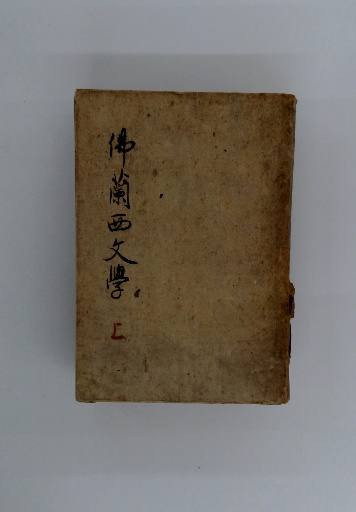 佛蘭西文學
上